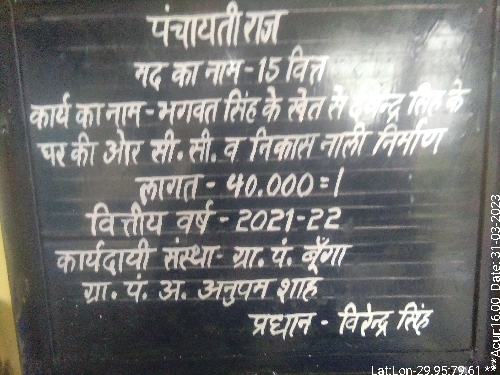 पंचायती राज
मद का नाम-15 वित्त
कार्य का नाम-भगवत सिंह के खेत से सिंह के
घर की ओर सी. सी. व निकास नाली निर्माण
लागत - 40.000=/
वित्तीय वर्ष - 2021-22
कार्यदायी संस्था- ग्रा. पं. बूँगा
ग्रा. पं. अ. अनुपम शाह
प्रधान - विरेन्द्र सिंह
Lat:Lon-29.95:79.61 ***Acur:16.00 Date: 31-03-2023